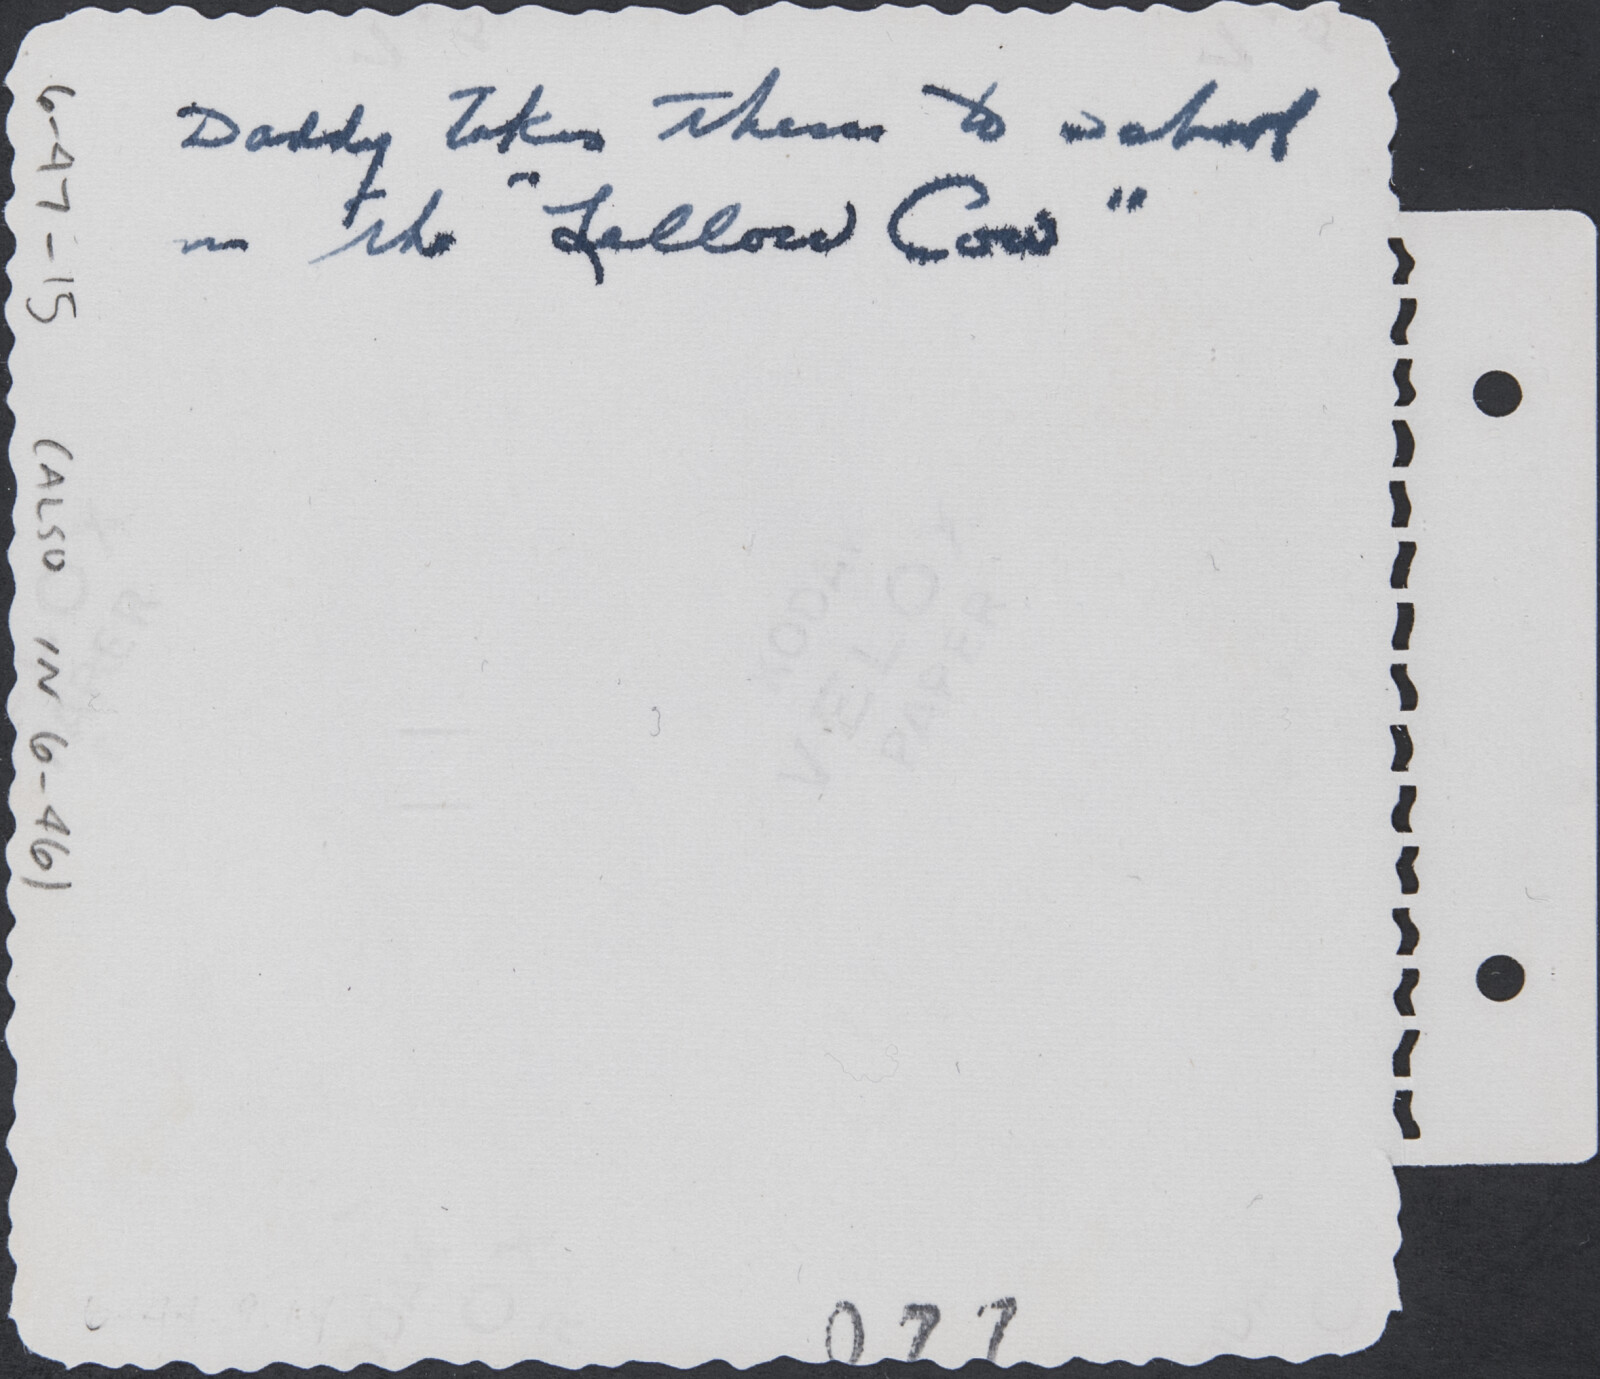 Daddy takes them to school
in the "Yellow Cow"
6-47-15 (ALSO IN 6-46)
VELOX
PAPER
077